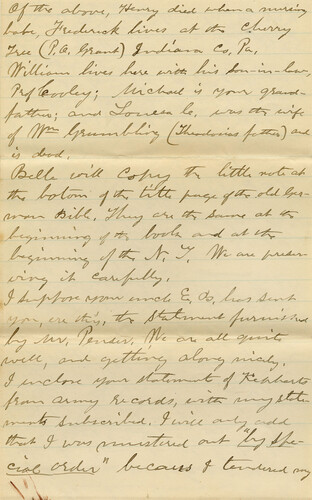 Of the above, Henry died when a nursing
babe, Frederick lives, at the Cherry
Tree (P.O. Grant) Indiana Co, Pa,
William lives here with his Son-in-law,
Prof Cooley; Michael is your grand-
father; and Louesa he, was the wife
of Wm Grumbling (Theodorius father) and
is dead.
Belle will copy the little note at
the botom of the title page of the old Ger-
man Bible. They are the same at the
beginning of the book and at the
beginning of the N. T. We are preser-
ving it carefully.
I suppose your uncle E, has sent
you, ere this, the statement furnished
by Mr. We are all quite
well, and getting along nicely.
I inclose your statement of
from army records, with my state-
ments subscribed. I will only add
that I was mustered out "by spe-
cial order" because I tendered my